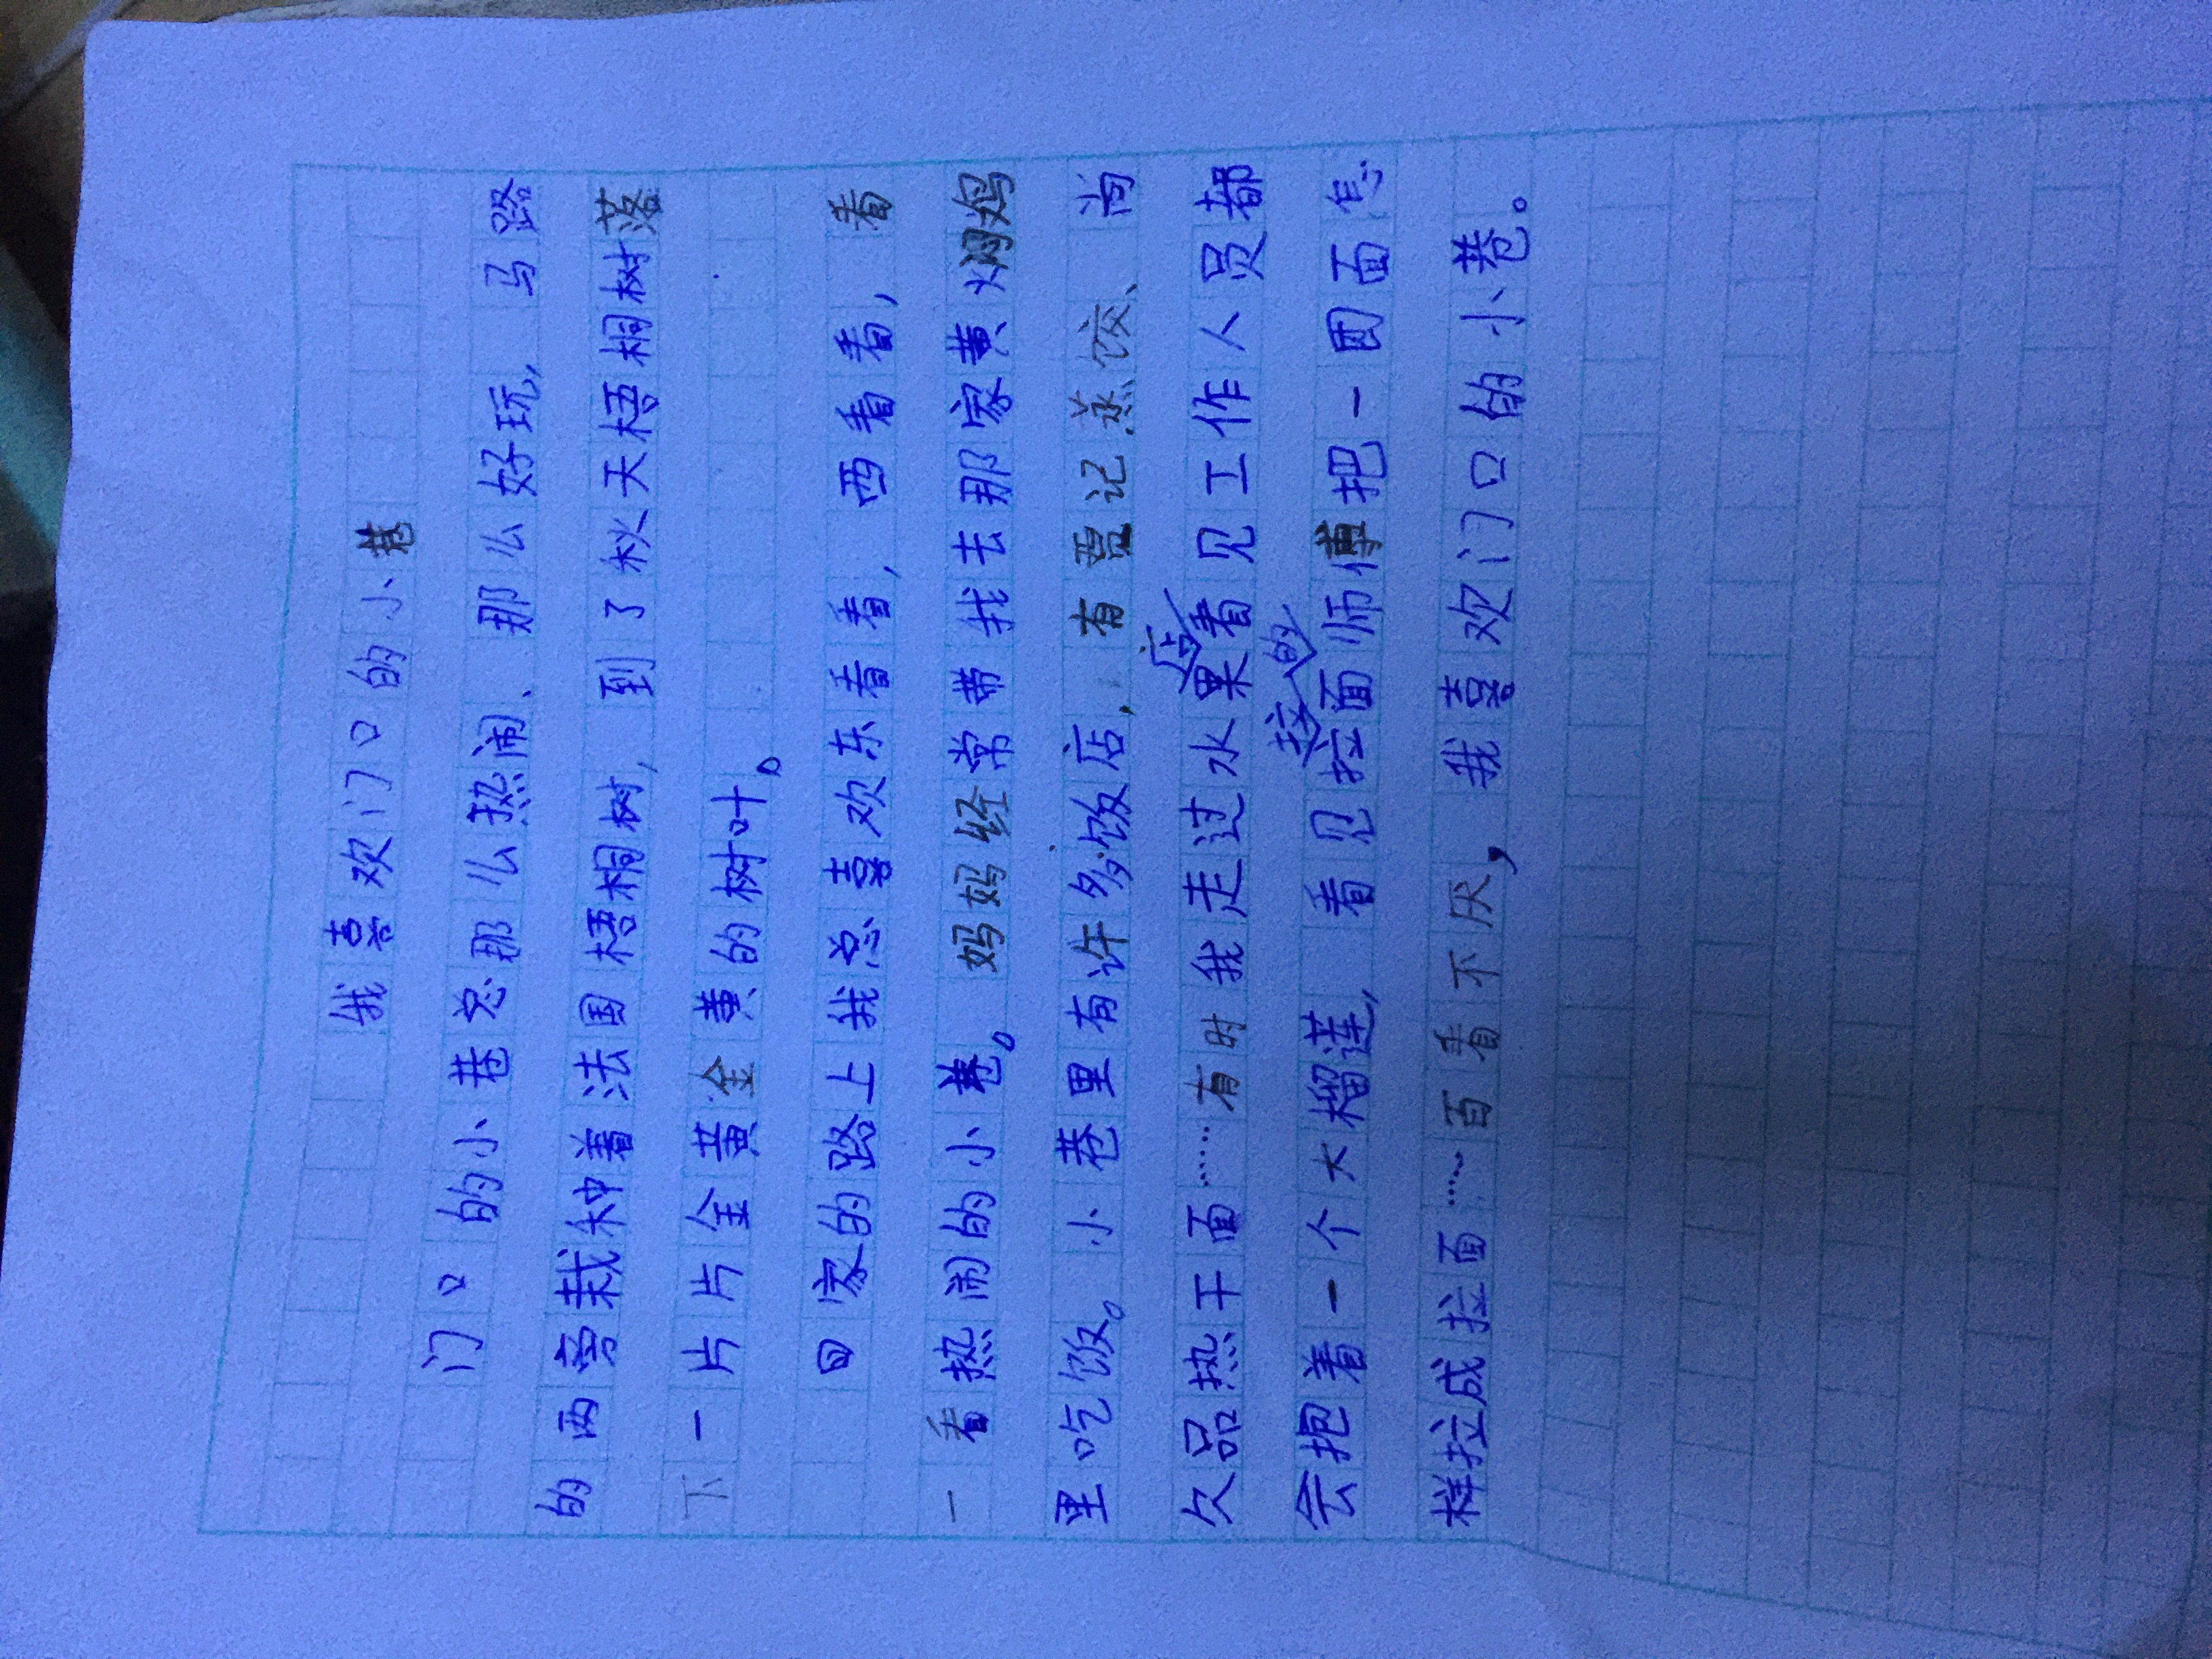 我喜欢门口的小巷
门口的小巷总那么热闹、那么好玩,马路
的两旁栽种着法国梧桐树,到了秋天梧桐树落
下一片片金黄金黄的树叶。
回家的路上我总喜欢东看看,西看看,看
一看热闹的小巷。妈妈经常带我去那家黄焖鸡
里吃饭。小巷里有许多饭店,有贾记蒸饺、尚
久品热干面……有时我走过水果店看见工作人员都
会抱着一个大榴莲,看见拉面的师傅把一团面怎
样拉成拉面……百看不厌,我喜欢门口的小巷。